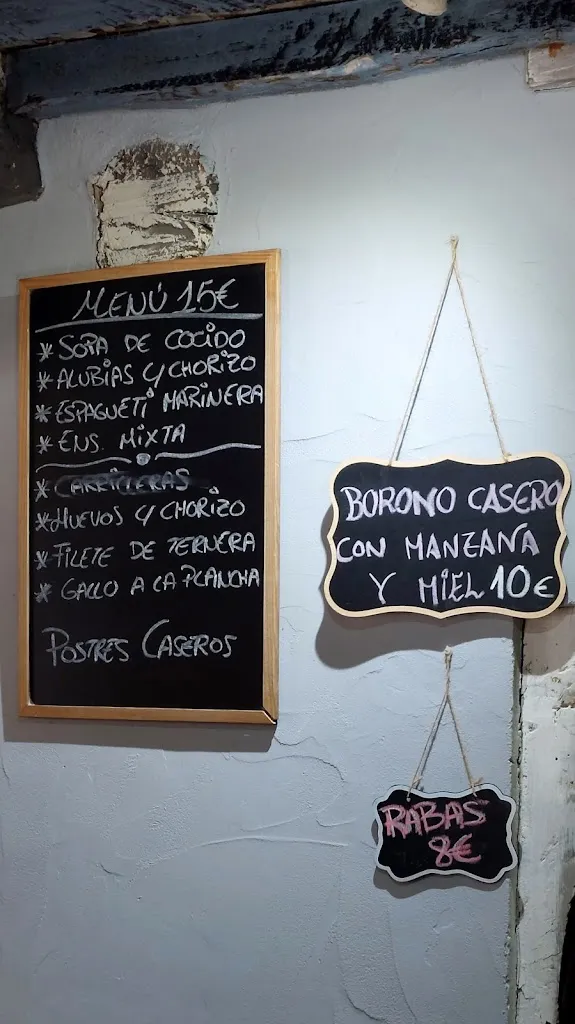 MENÚ 15€
* SOPA DE COCIDO
* ALUBIAS Y CHORIZO
* ESPAGUETI MARINERA
* ENS. MIXTA
* CARRILLERAS
* HUEVOS Y CHORIZO
* FILETE DE TERNERA
* GALLO A LA PLANCHA
POSTRES CASEROS
BORONO CASERO
CON MANZANA
Y MIEL 10€
RABAS
8€